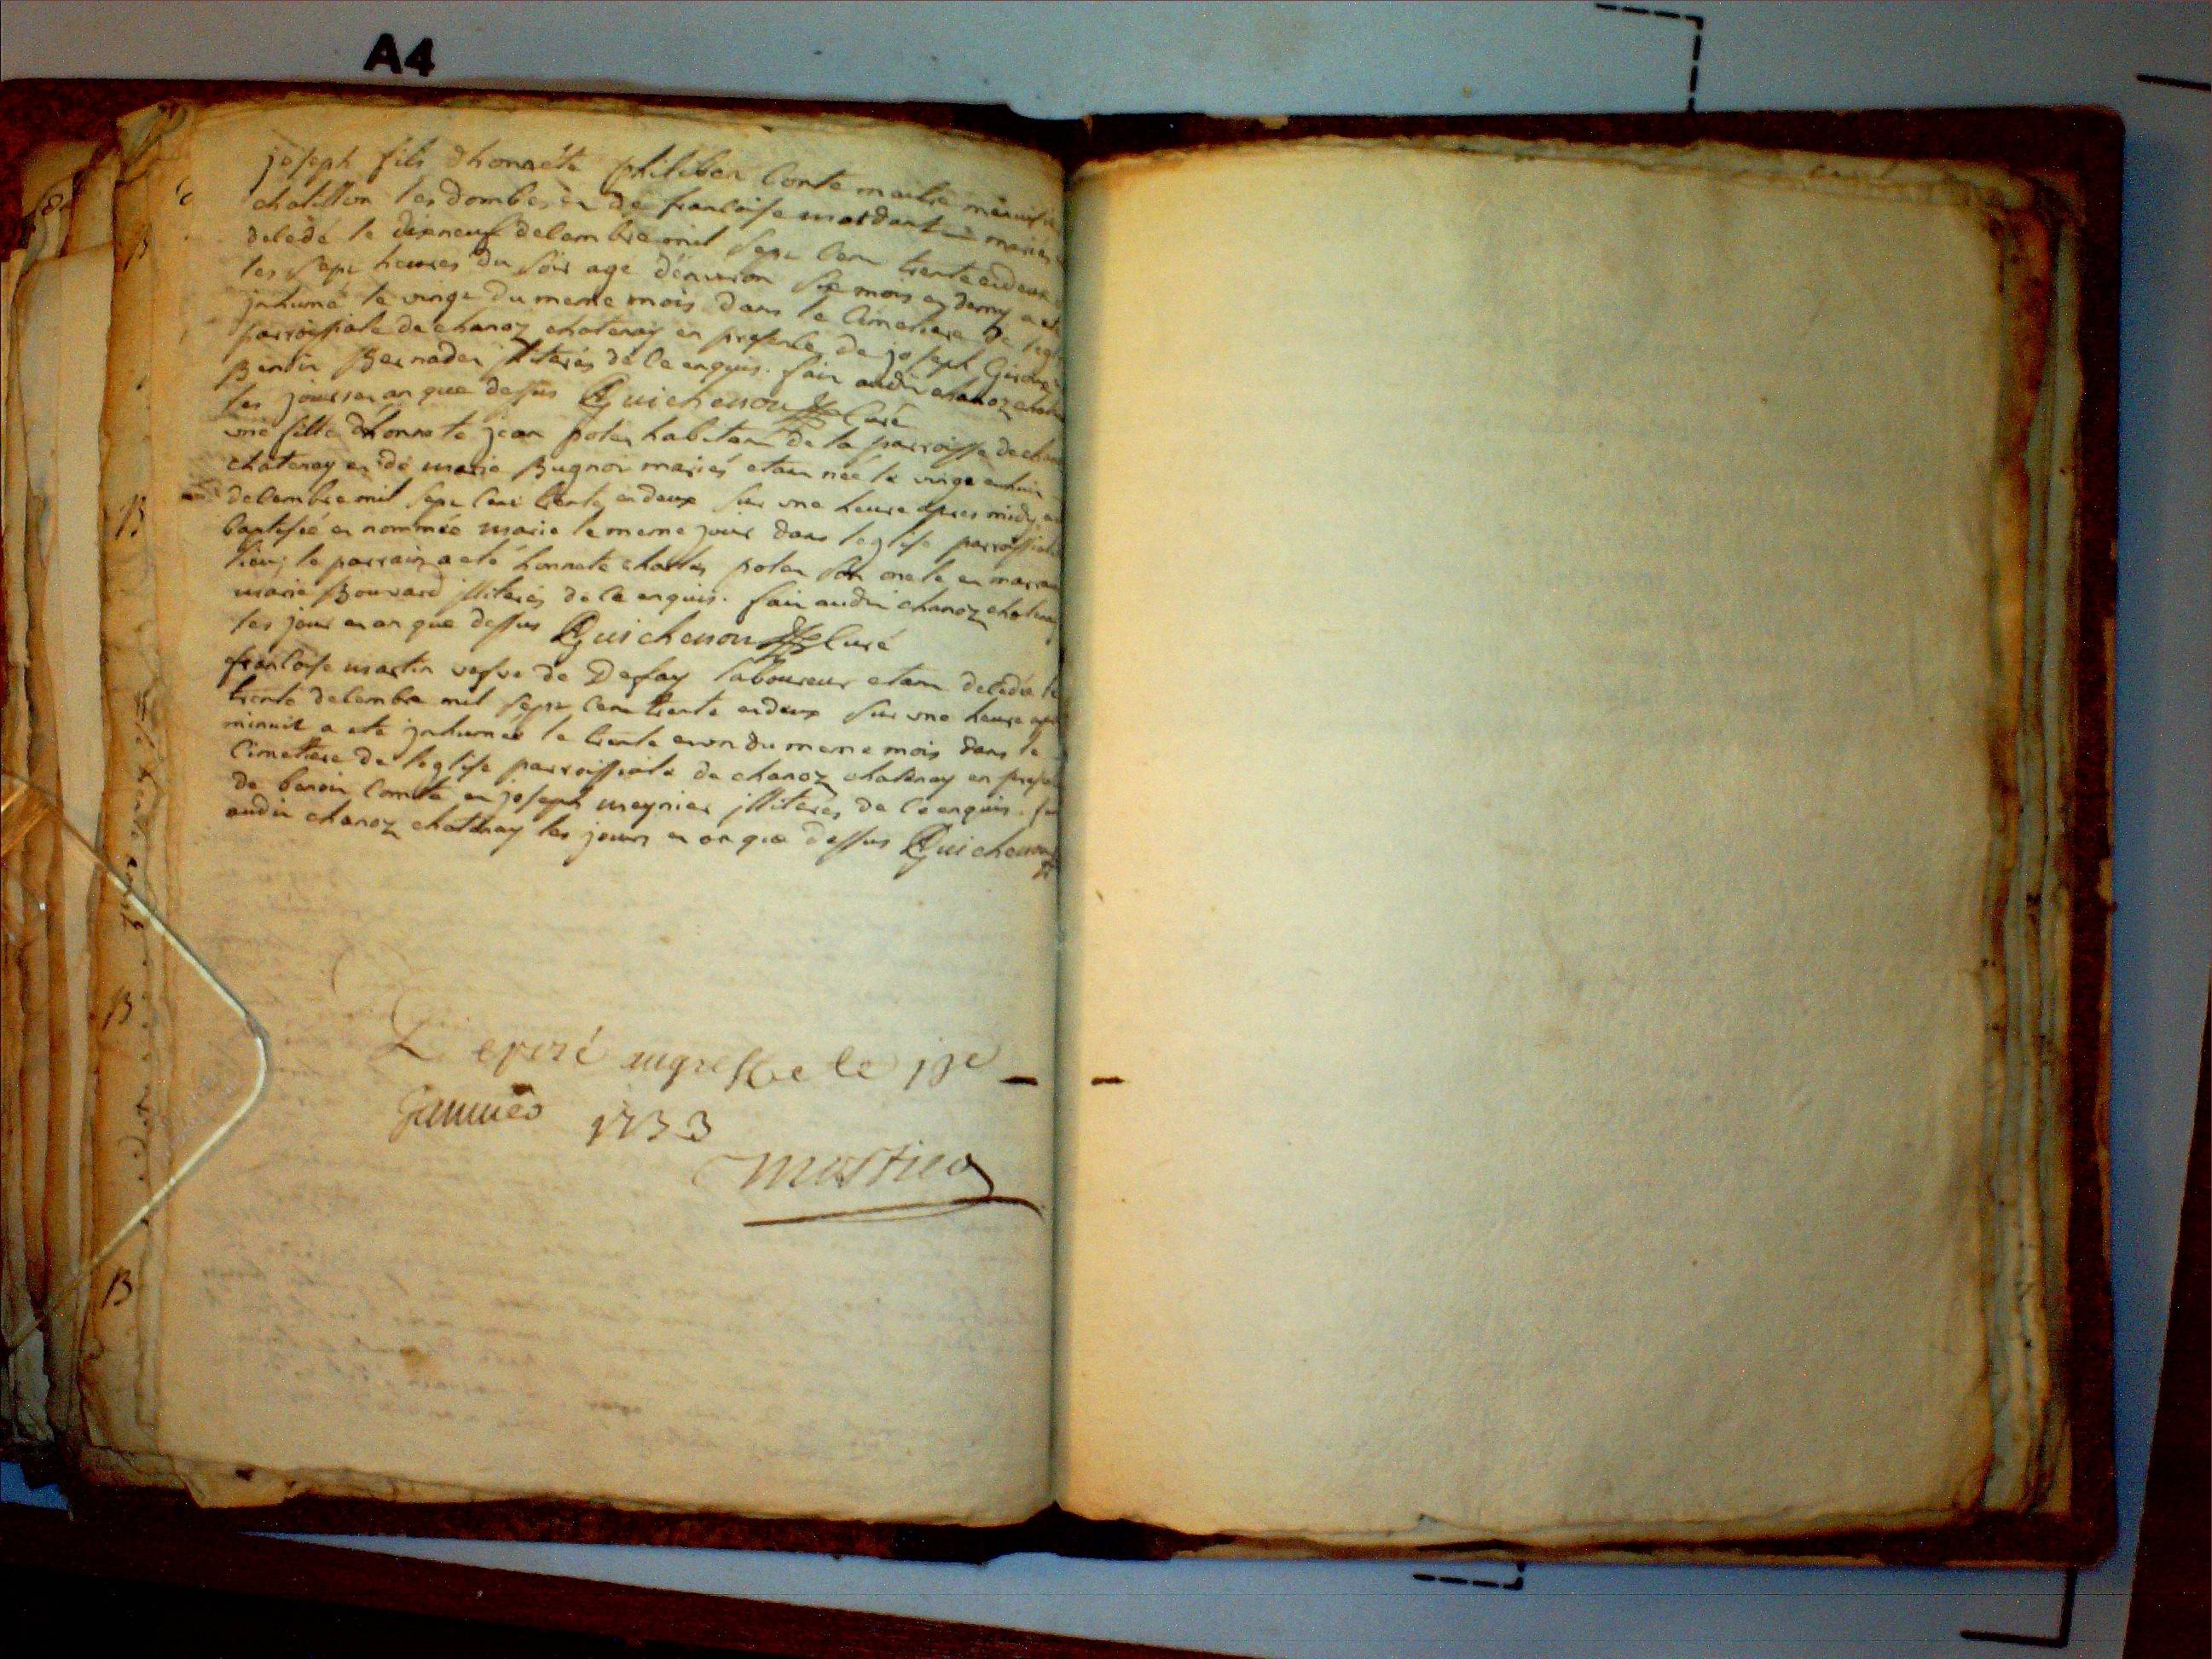 A4
joseph fils dhonnéte philiber Conte maitre menuisie
chatillon les dombes en de francoise mordant mariés
decedé le dixneuf decembre mil sept cent trente en deux
les sept heures du soir agé denviron six mois en demy a eté
jnhumé le vingt du meme mois dans le cimetiere de legl
parroissiale de chanoz chatenay en presence de joseph Giroux
Bentin Bernaden jlliterés de ce enquis. fait audit chanoz chate
les jours en an que dessus Guichenon Curé
une fille dhonnete jean poten habitant de la parroisse de chan
chatenay en de marie Bugnon mariés etant née le vingt en huit
decembre mil sept cent trente en deux sur une heure apres midy
baptisée en nommée marie le meme jour dans leglise parroissiale
lieu; le parrain a eté honnete charles poten son oncle en marrain
marie Bouvard jlliterés de ce enquis. fait audit chanoz chatenay
les jour en an que dessus Guichenon Curé
francoise martin vefve de Defay laboureur etant decedée le
trente decembre mil sept cent trente en deux sur une heure apre
minuit a eté jnhumée le trente en un du meme mois dans le
Cimetiere de leglise parroissiale de chanoz chatenay en presen
de benoit Comte en joseph meynier jlliterés de ce enquis. fa
audit chanoz chatenay les jours en an que dessus Guichenon
Deposé augreffe le
Janvier 1733
B
B
B
B